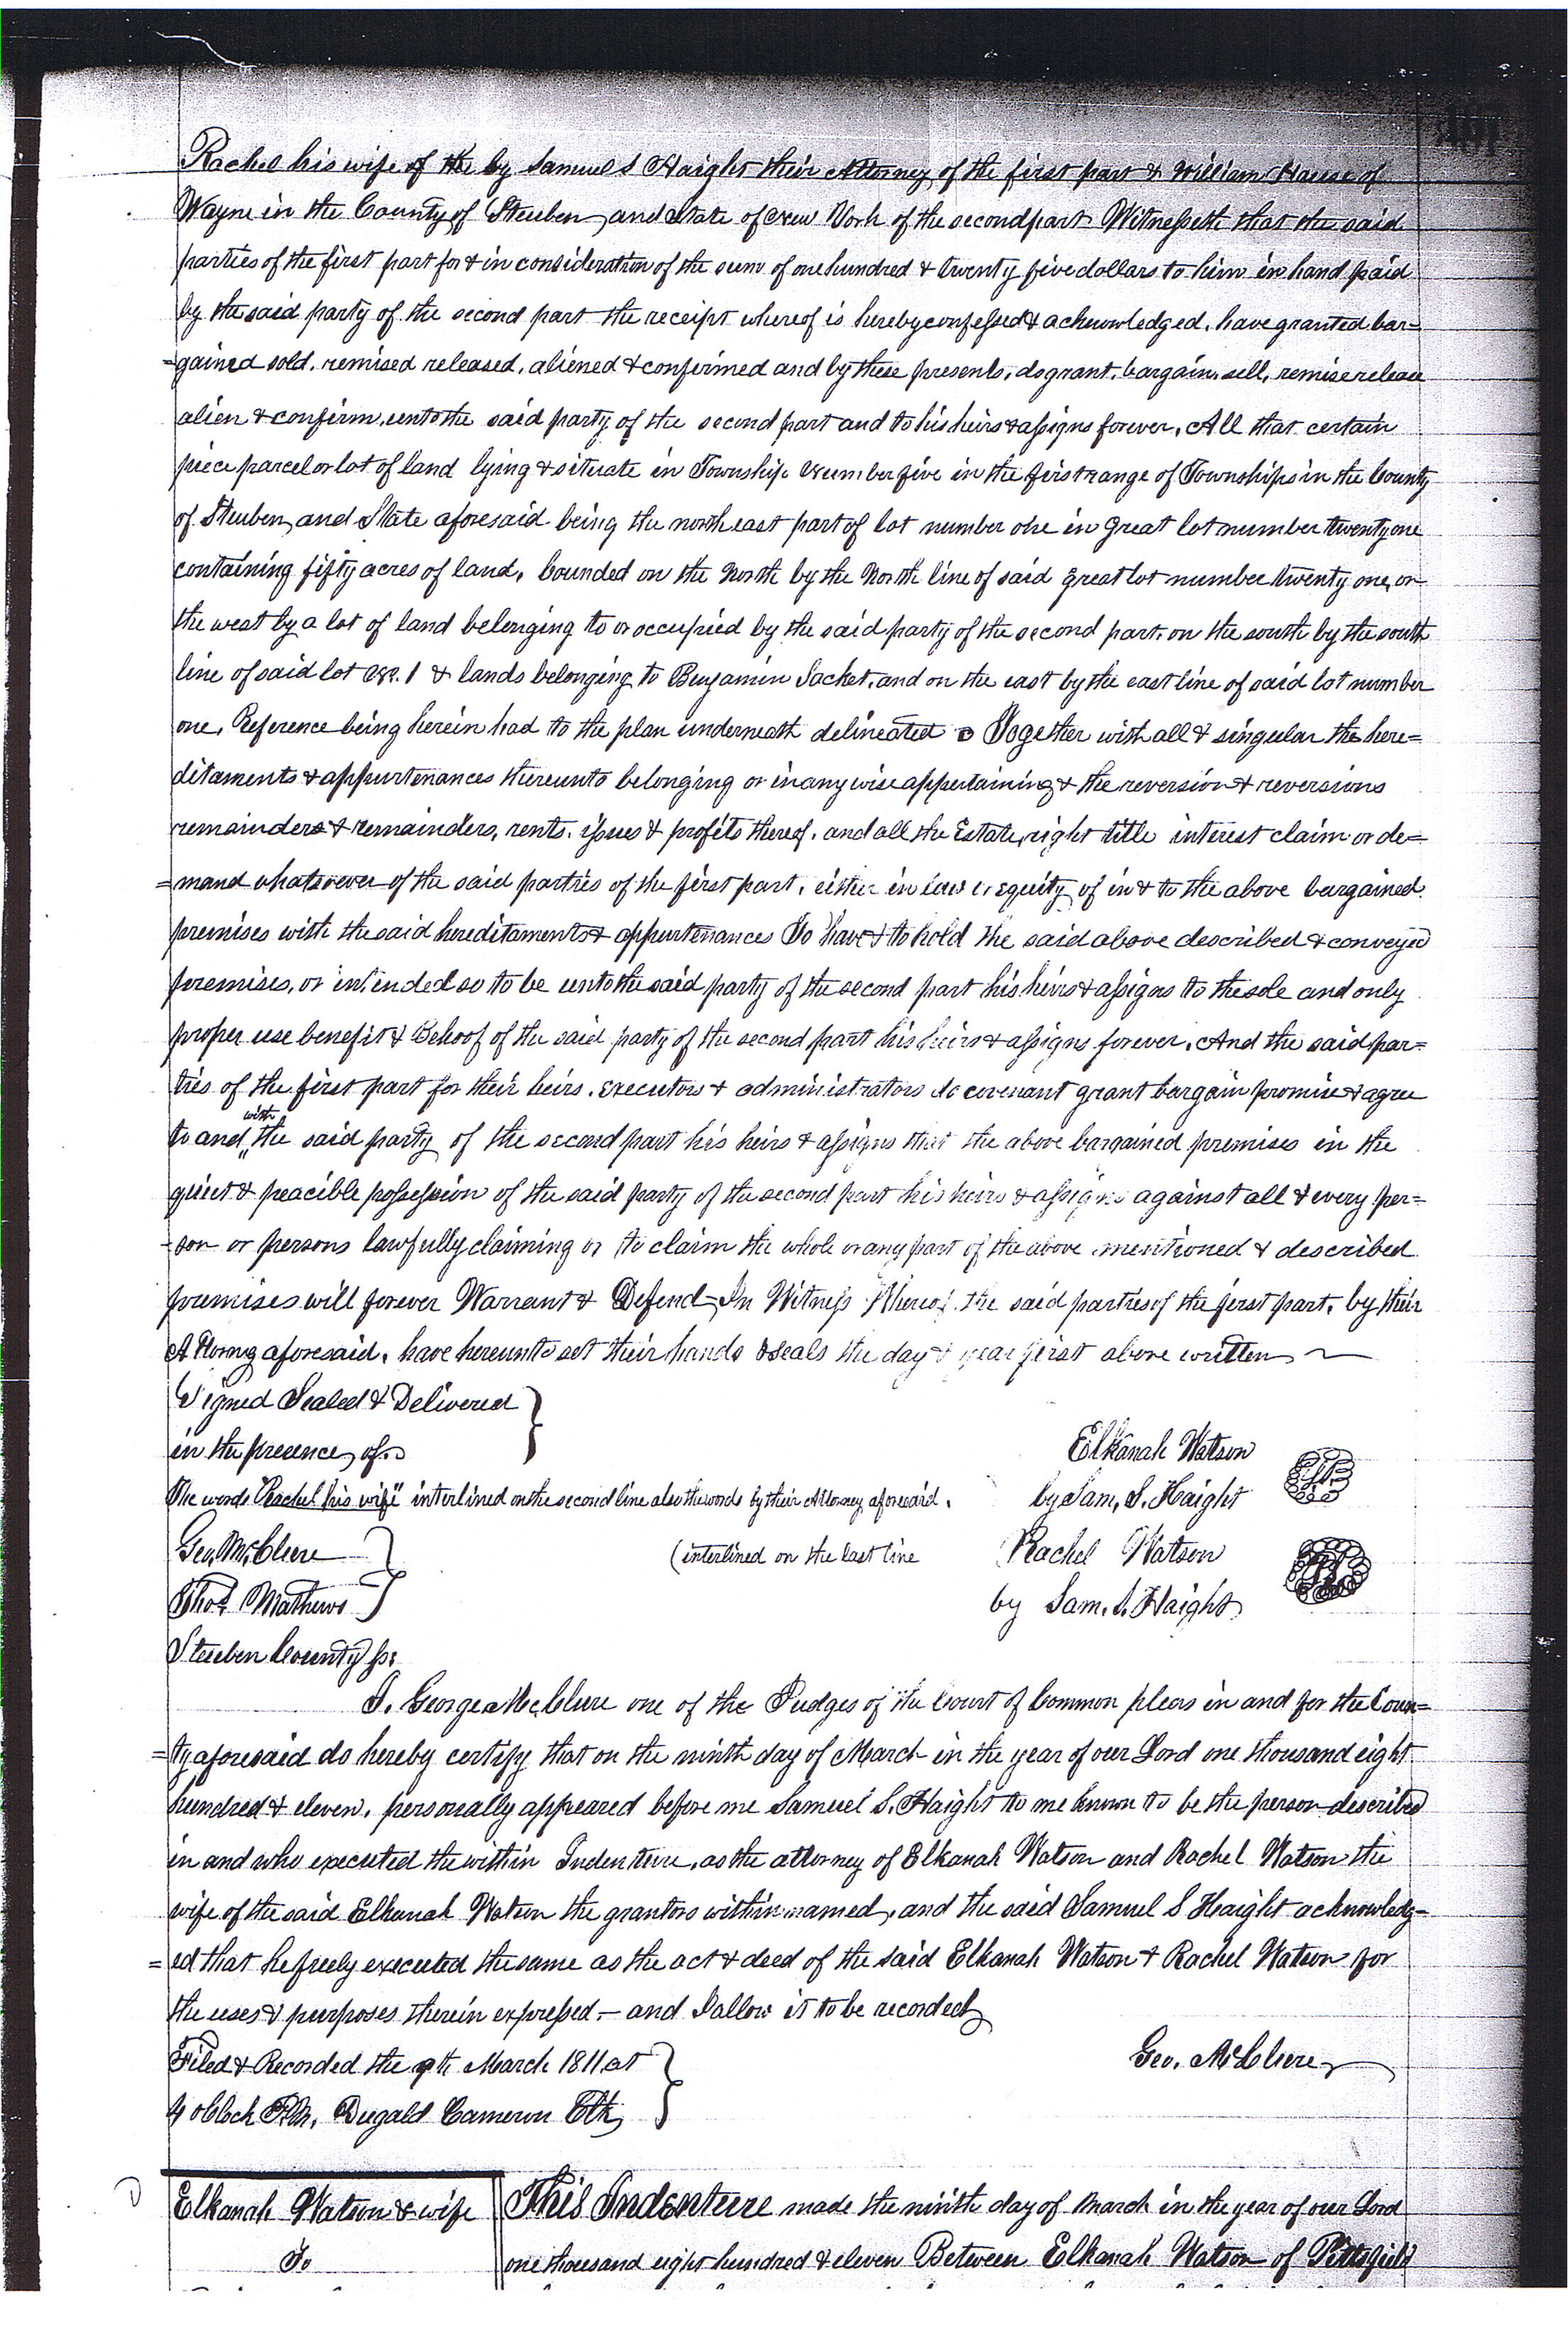 Rachel his wife of the by Samuel S Haight their Attorney of the first part & William Hause of
Wayne in the County of Steuben and State of New York of the second part Witnesseth that the said
parties of the first part for & in consideration of the sum of one hundred & twenty five dollars to him in hand paid
by the said party of the second part the receipt whereof is hereby confessed & acknowledged, have granted bar=
=gained sold, remised released, aliened & confirmed and by these presents, do grant, bargain, sell, remise release
alien & confirm, unto the said party of the second part and to his heirs & assigns forever, All that certain
piece parcel or lot of land lying & situate in Township Number five in the first range of Townships in the County
of Steuben and State aforesaid being the north east part of lot number one in great lot number twenty one
containing fifty acres of land, bounded on the North by the North line of said great lot number twenty one, on
the west by a lot of land belonging to or occupied by the said party of the second part, on the south by the south
line of said lot No. 1 & lands belonging to Benjamin Sacket, and on the east by the east line of said lot number
one, Reference being herein had to the plan underneath delineated Together with all & singular the here=
ditaments & appurtenances thereunto belonging or in any wise appertaining & the reversion & reversions
remainders & remainders, rents, issues & profits thereof, and all the Estate, right title interest claim or de=
=mand whatsoever of the said parties of the first part, either in law or equity of in & to the above bargained
premises with the said hereditaments & appurtenances To have & to hold the said above described & conveyed
premises, or intended so to be unto the said party of the second part his heirs & assigns to the sole and only
proper use benefit & Behoof of the said party of the second part his heirs & assigns forever, And the said par=
ties of the first part for their heirs, executors & administrators do covenant grant bargain promise & agree
to and with the said party of the second part his heirs & assigns that the above bargained premises in the
quiet & peacible possession of the said party of the second part his heirs & assigns against all & every per=
-son or persons lawfully claiming or to claim the whole or any part of the above mentioned & described
premises will forever Warrant & Defend - In Witness Whereof the said parties of the first part, by their
Attorney aforesaid, have hereunto set their hands & seals the day & year first above written
Signed Sealed & Delivered
in the presence of
Elkanah Watson
The words "Rachel his wife" interlined on the second line also the words by their Attorney aforesaid.
by Sam, S. Haight
Geo. McClure
(interlined on the last line
Rachel Watson
Thos. Mathews
by Sam. S. Haight
Steuben County ss:
I. George McClure one of the Judges of the Court of Common pleas in and for the Coun=
=ty aforesaid do hereby certify that on the ninth day of March in the year of our Lord one thousand eight
hundred & eleven, personally appeared before me Samuel S. Haight to me known to be the person described
in and who executed the within Indenture, as the attorney of Elkanah Watson and Rachel Watson the
wife of the said Elkanah Watson the grantors within named, and the said Samuel S Haight acknowledg=
=ed that he freely executed the same as the act & deed of the said Elkanah Watson & Rachel Watson for
the uses & purposes therein expressed - and I allow it to be recorded
Geo. McClure
Filed & Recorded the 9th March 1811 at
4 oClock P.M. Dugald Cameron Clk
Elkanah Watson & wife
To
This Indenture made the ninth day of March in the year of our Lord
one thousand eight hundred & eleven Between Elkanah Watson of Pittsfield